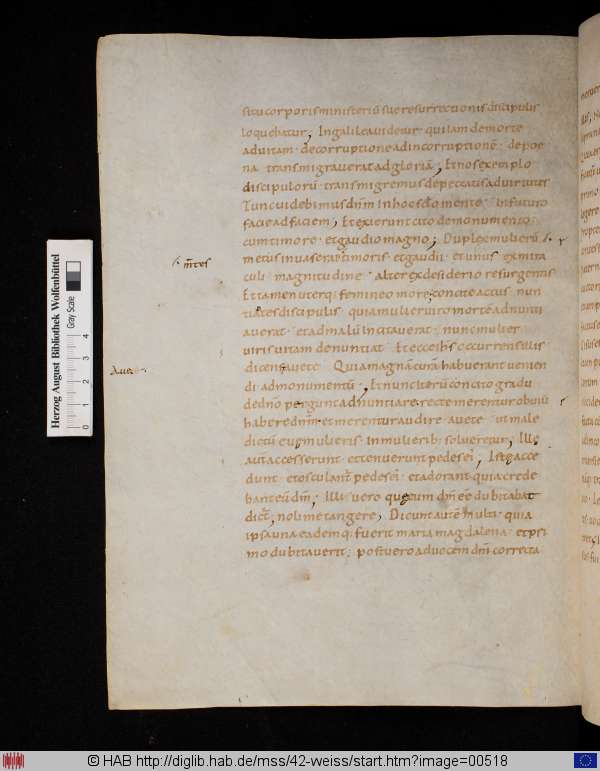 situ corporis ministeriū suę resurrectionis discipulis
loquebatur; In galilea videtur. qui iam de morte
ad vitam. de corruptione ad incorruptionē. de poe
na transmigraverat ad gloriā; Et nos exemplo
discipulorū transmigremus de peccatis ad virtutes
Tunc videbimus dn̄m in hoc
facie ad faciem; Et exierunt cito de monumento
cum timore. et gaudio magno; Duplex mulierū
metus invaserat timoris. et gaudii. et unus ex mira
culi magnitudine. alter ex desiderio resurgentis
Et tamen uterq; femineo more concite
tiabat discipulis quia mulier viro morte adnunti
averat. et ad malū incitaverat. nunc mulier
viris vitam denuntiat Et ecce ih̄s occurrens illis
dicens avete Quia magnā curā habuerant venien
di ad monumentū; Et nuncierū concito gradu
de dn̄o pergunt adnuntiare. recte merentur obviū
habere dn̄m et merentur audire avete ut male
dictū euę mulieris in mulierib: solveretur; Illę
aut̄ accesserunt et tenuerunt pedes ei; Istę acce
dunt et osculant̄ pedes ei. et adorant quia crede
bant eū dn̄m; Illi vero quę cum dn̄m eē dubitabat
dict̄; noli me tangere; Dicunt autē multi quia
ipsa una eademq. fuerit maria magdalena et pri
mo dubitaverit; post vero ad vocem dn̄i correcta
Ave
Herzog August Bibliothek Wolfenbüttel
Gray Scale
0 1 2 3 4
© HAB http://diglib.hab.de/mss/42-weiss/start.htm?image=00518